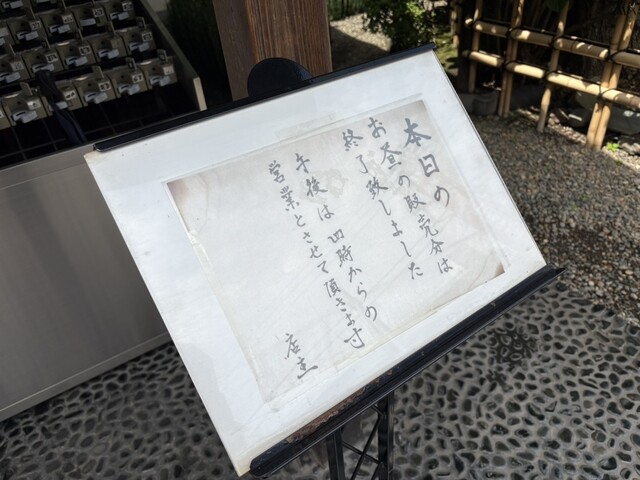 本日の
お昼の販売分は
終了致しました
午後は四時からの
営業とさせて頂きます
店主